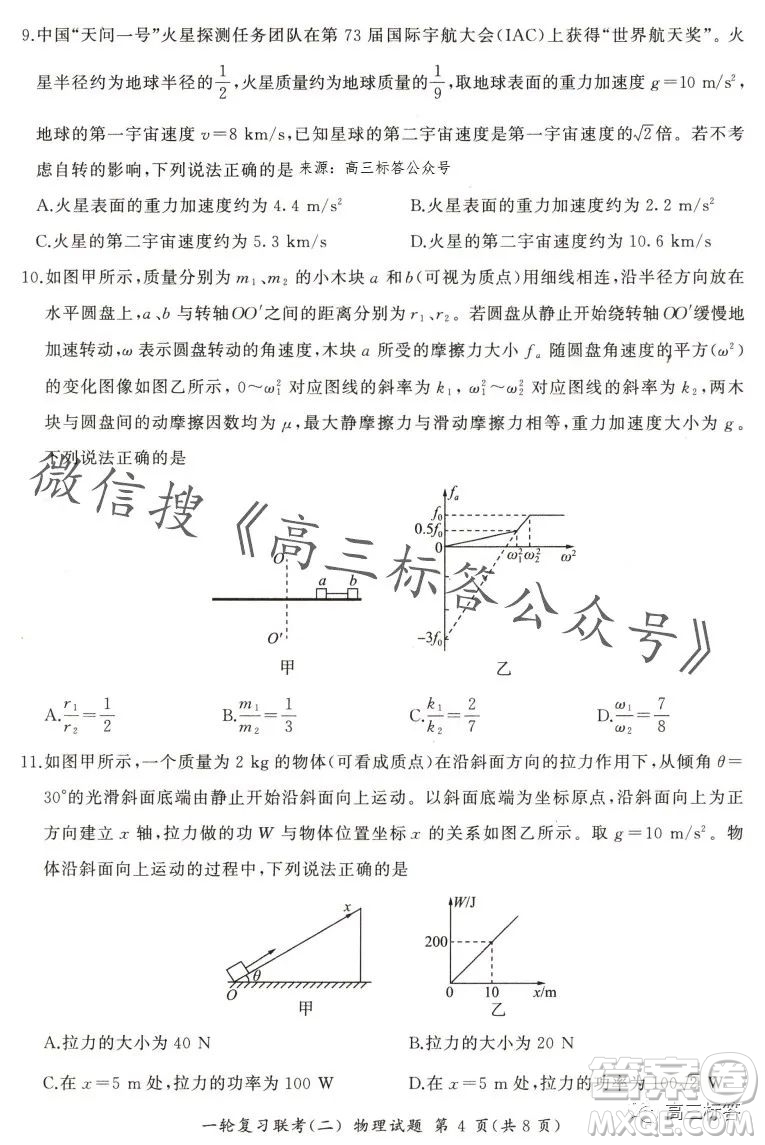 9.中国“天问一号”火星探测任务团队在第 73 届国际宇航大会(IAC)上获得“世界航天奖”。火
星半径约为地球半径的1/2,火星质量约为地球质量的1/9,取地球表面的重力加速度 g=10 m/s²,
地球的第一宇宙速度 v=8 km/s,已知星球的第二宇宙速度是第一宇宙速度的√2倍。若不考
虑自转的影响,下列说法正确的是 来源：高三标答公众号
A.火星表面的重力加速度约为 4.4 m/s² B.火星表面的重力加速度约为 2.2 m/s²
C.火星的第二宇宙速度约为 5.3 km/s D.火星的第二宇宙速度约为 10.6 km/s
10.如图甲所示,质量分别为 m₁、m₂ 的小木块 a 和 b(可视为质点)用细线相连,沿半径方向放在
水平圆盘上,a、b 与转轴OO′之间的距离分别为 r₁、r₂。若圆盘从静止开始绕转轴OO′缓慢地
加速转动,ω 表示圆盘转动的角速度,木块 a 所受的摩擦力大小 fₐ 随圆盘角速度的平方(ω²)
的变化图像如图乙所示, 0～ω₁² 对应图线的斜率为 k₁, ω₁²～ω₂² 对应图线的斜率为 k₂,两木
块与圆盘间的动摩擦因数均为 μ,最大静摩擦力与滑动摩擦力相等,重力加速度大小为 g。
下列说法正确的是
微信搜《高三标答公众号》
O
a b
O′
甲
fₐ
f₀
0.5f₀
0
ω₁² ω₂² ω²
−3f₀
乙
A. r₁/r₂=1/2 B. m₁/m₂=1/3 C. k₁/k₂=2/7 D. ω₁/ω₂=7/8
11.如图甲所示,一个质量为 2 kg 的物体(可看成质点)在沿斜面方向的拉力作用下,从倾角 θ=
30°的光滑斜面底端由静止开始沿斜面向上运动。以斜面底端为坐标原点,沿斜面向上为正
方向建立 x 轴,拉力做的功 W 与物体位置坐标 x 的关系如图乙所示。取 g=10 m/s²。物
体沿斜面向上运动的过程中,下列说法正确的是
x
θ
O
甲
W/J
200
0 10 x/m
乙
A.拉力的大小为 40 N B.拉力的大小为 20 N
C.在 x=5 m 处,拉力的功率为 100 W D.在 x=5 m 处,拉力的功率为 100√2 W
一轮复习联考(二) 物理试题 第 4 页(共 8 页)
高三标答
答案圈
MXQE.COM